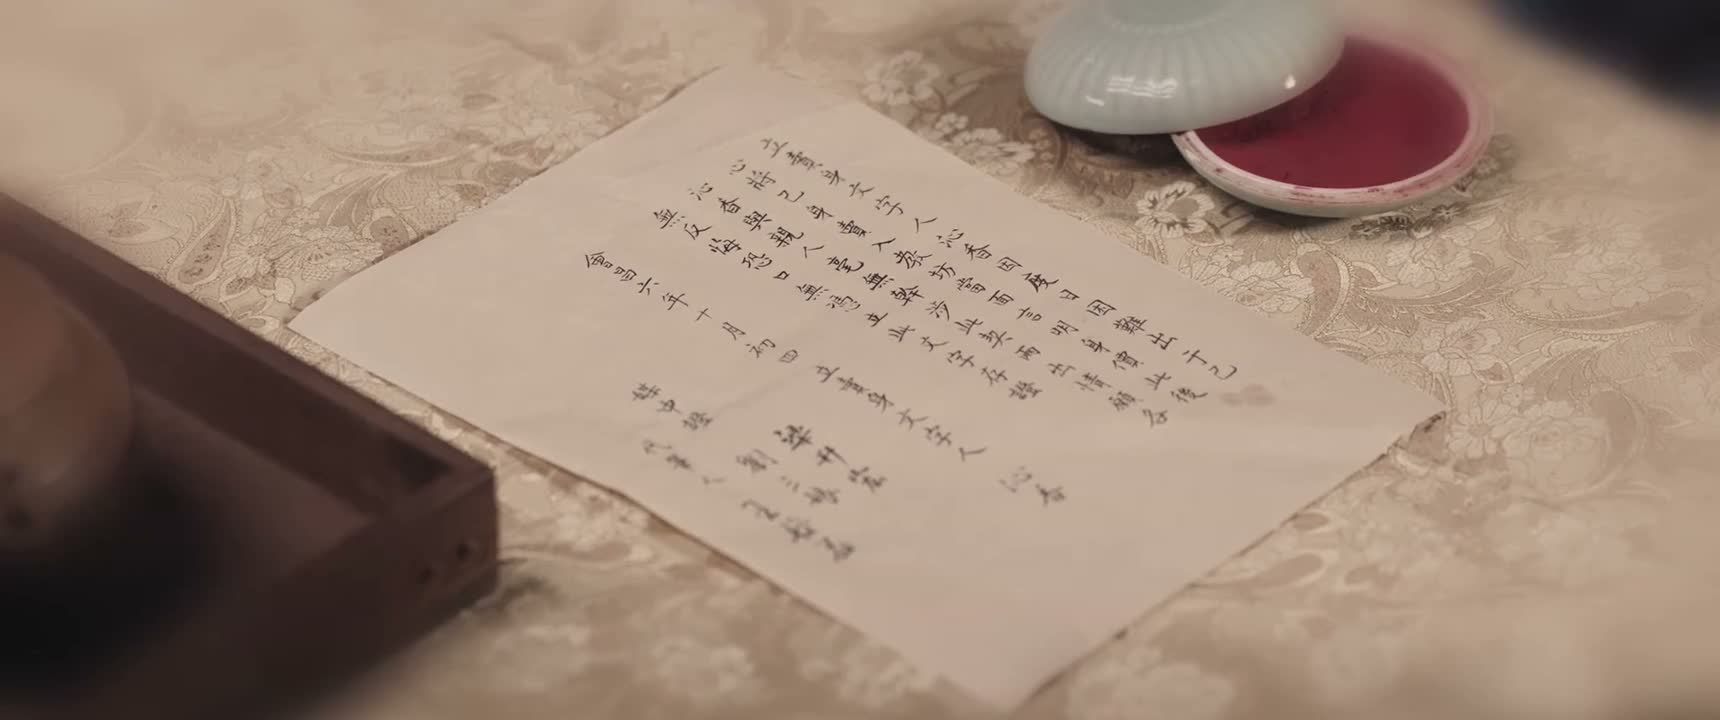 立賣身文字人沁香因度日困難出于己
心將己身賣入教坊當面言明身價此後
沁香與親人毫無幹涉此契兩出情願各
無反悔恐口無憑立此文字存證
會昌六年十月初四立賣身文字人 沁香
媒中證
代筆人